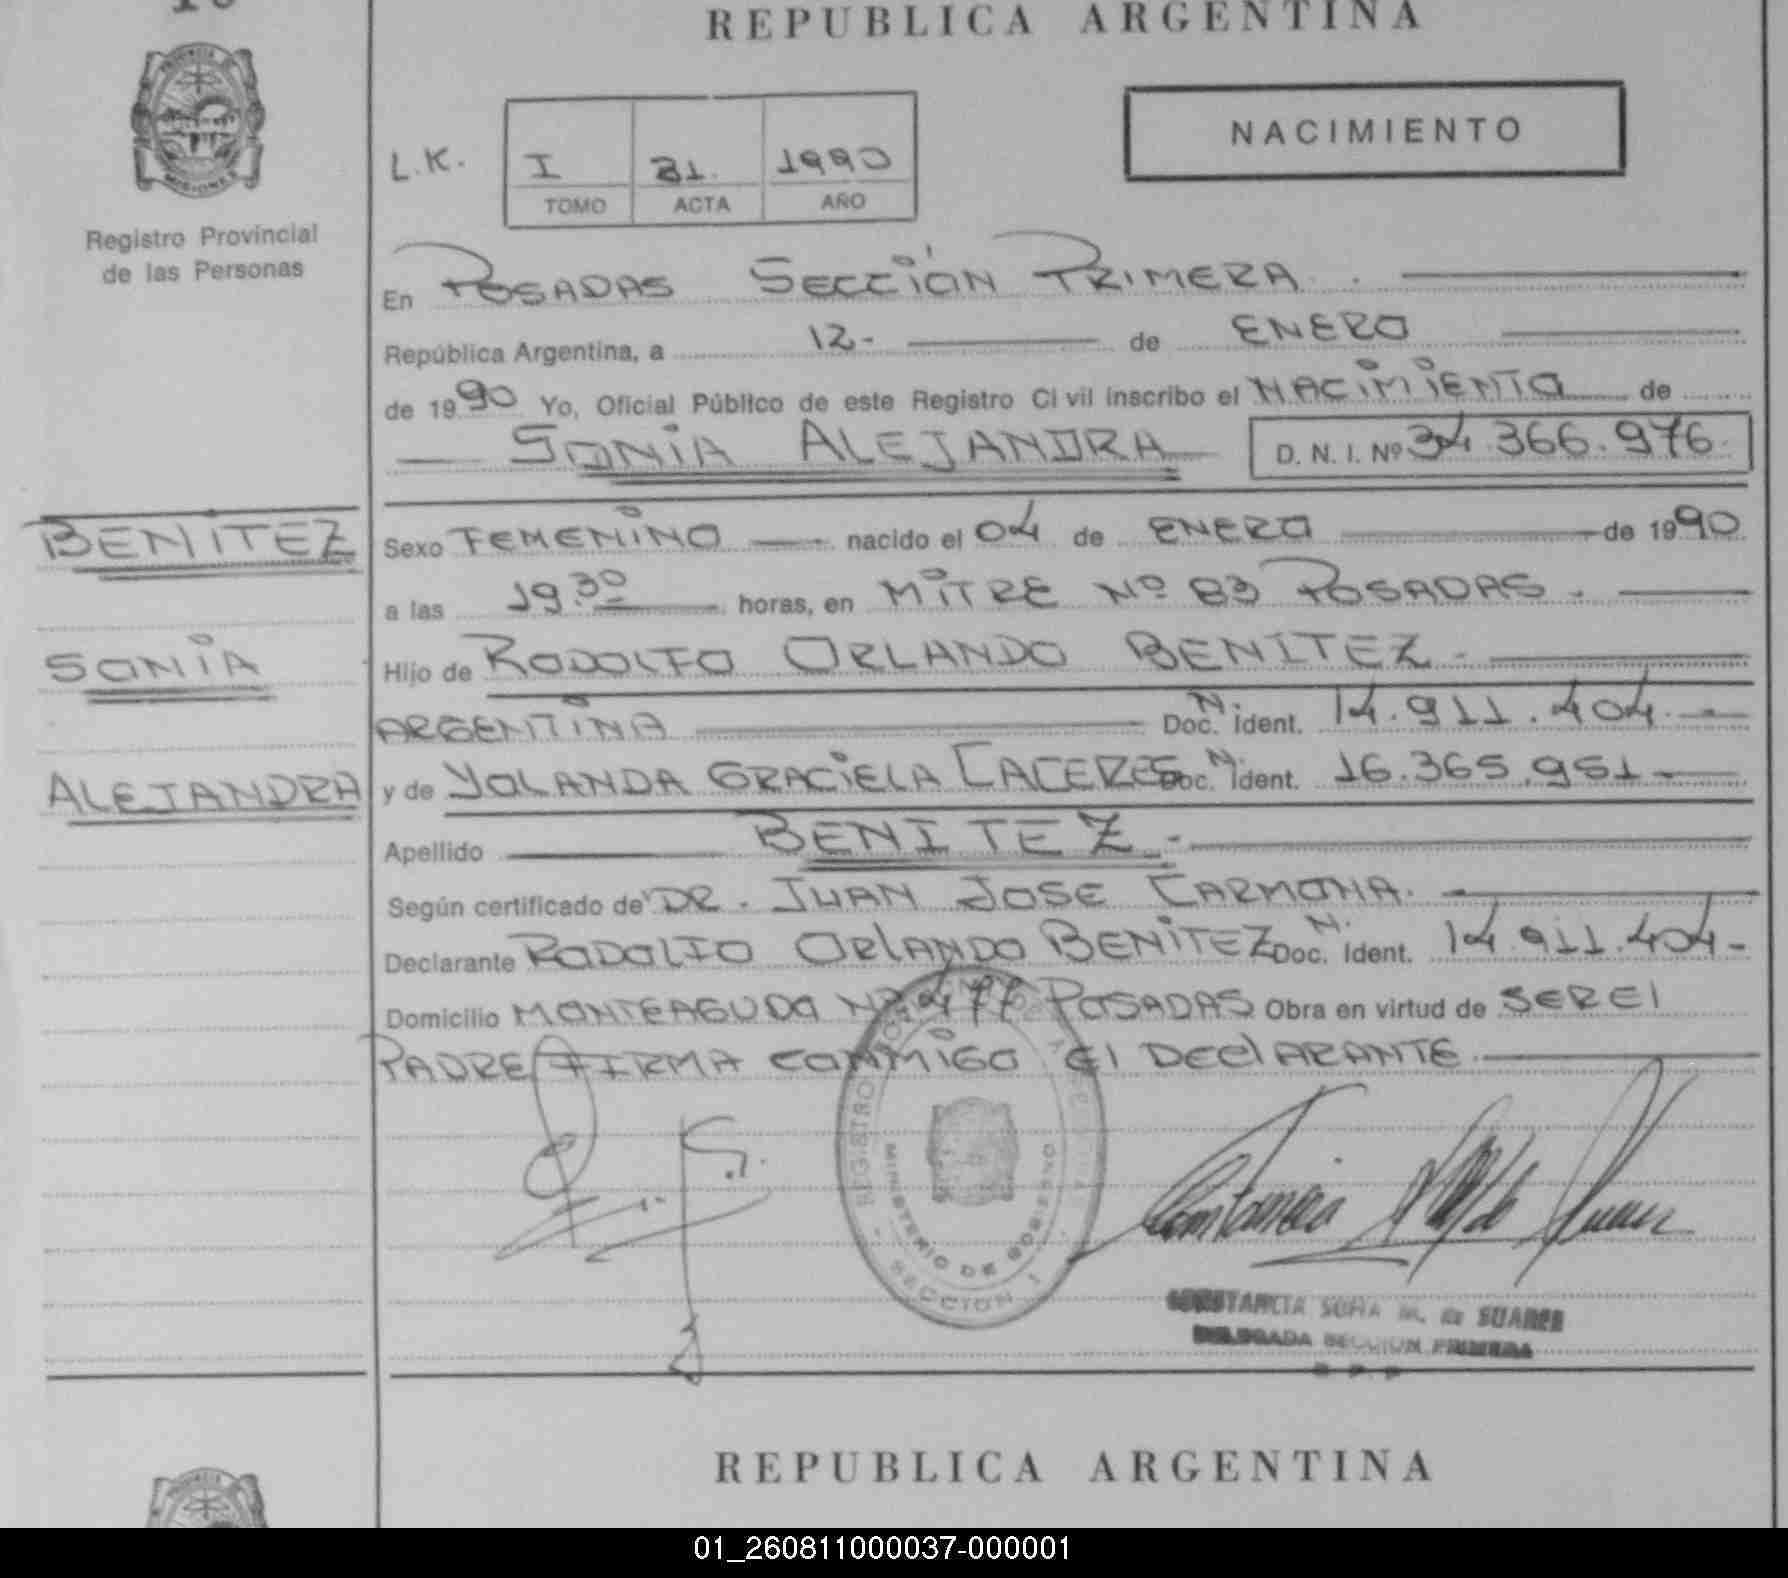 REPUBLICA ARGENTINA
PROVINCIA DE
MISIONES
Registro Provincial
de las Personas
NACIMIENTO
L.K. I 81. 1990
TOMO ACTA AÑO
En POSADAS SECCIÓN PRIMERA.
República Argentina, a 12- de ENERO
de 1990 Yo, Oficial Público de este Registro Civil inscribo el NACIMIENTO de
SONIA ALEJANDRA D. N. I. Nº 34.366.976
BENITEZ
SONIA
ALEJANDRA
Sexo FEMENINO nacido el 04 de ENERO de 1990
a las 19.30 horas, en MITRE Nº 83 POSADAS.
Hijo de RODOLFO ORLANDO BENITEZ-
ARGENTINA N. Doc. Ident. 14.911.404.-
y de YOLANDA GRACIELA CACERES N. Doc. Ident. 16.365.951-
Apellido BENITEZ.-
Según certificado de DR. JUAN JOSE CARMONA.
Declarante RODOLFO ORLANDO BENITEZ N. Doc. Ident. 14.911.404-
Domicilio MONTEAGUDO Nº 477 POSADAS Obra en virtud de SER El
PADRE FIRMA CONMIGO El DEClARANTE
REGISTRO
MINISTERIO DE GOBIERNO
SECCION 1
CONSTANCIA SOFIA M. de SUAREZ
DELEGADA SECCION PRIMERA
R. P. P.
REPUBLICA ARGENTINA
PROVINCIA
01_260811000037-000001